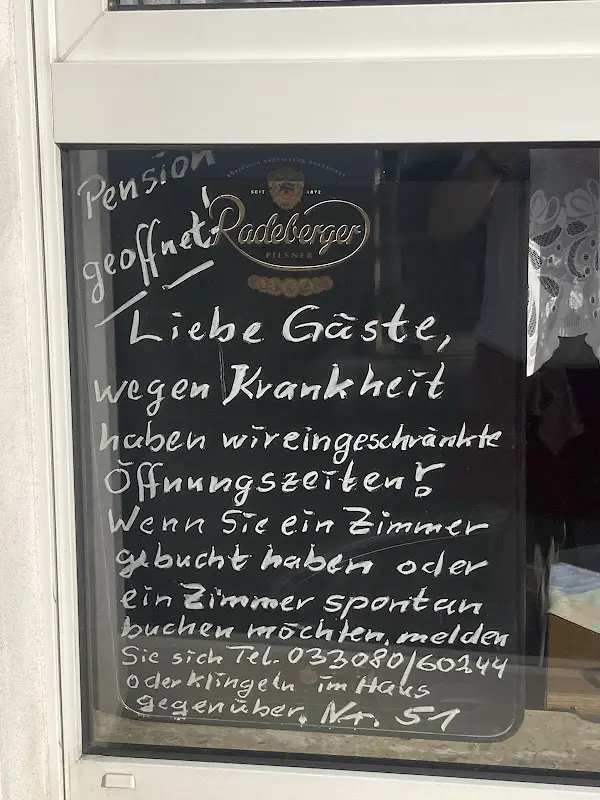 Pension
geöffnet!
SEIT 1872
Radeberger
PILSNER
Liebe Gäste,
wegen Krankheit
haben wir eingeschränkte
Öffnungszeiten!
Wenn Sie ein Zimmer
gebucht haben oder
ein Zimmer spontan
buchen möchten, melden
Sie sich Tel. 033080/60244
oder klingeln im Haus
gegenüber. Nr. 51